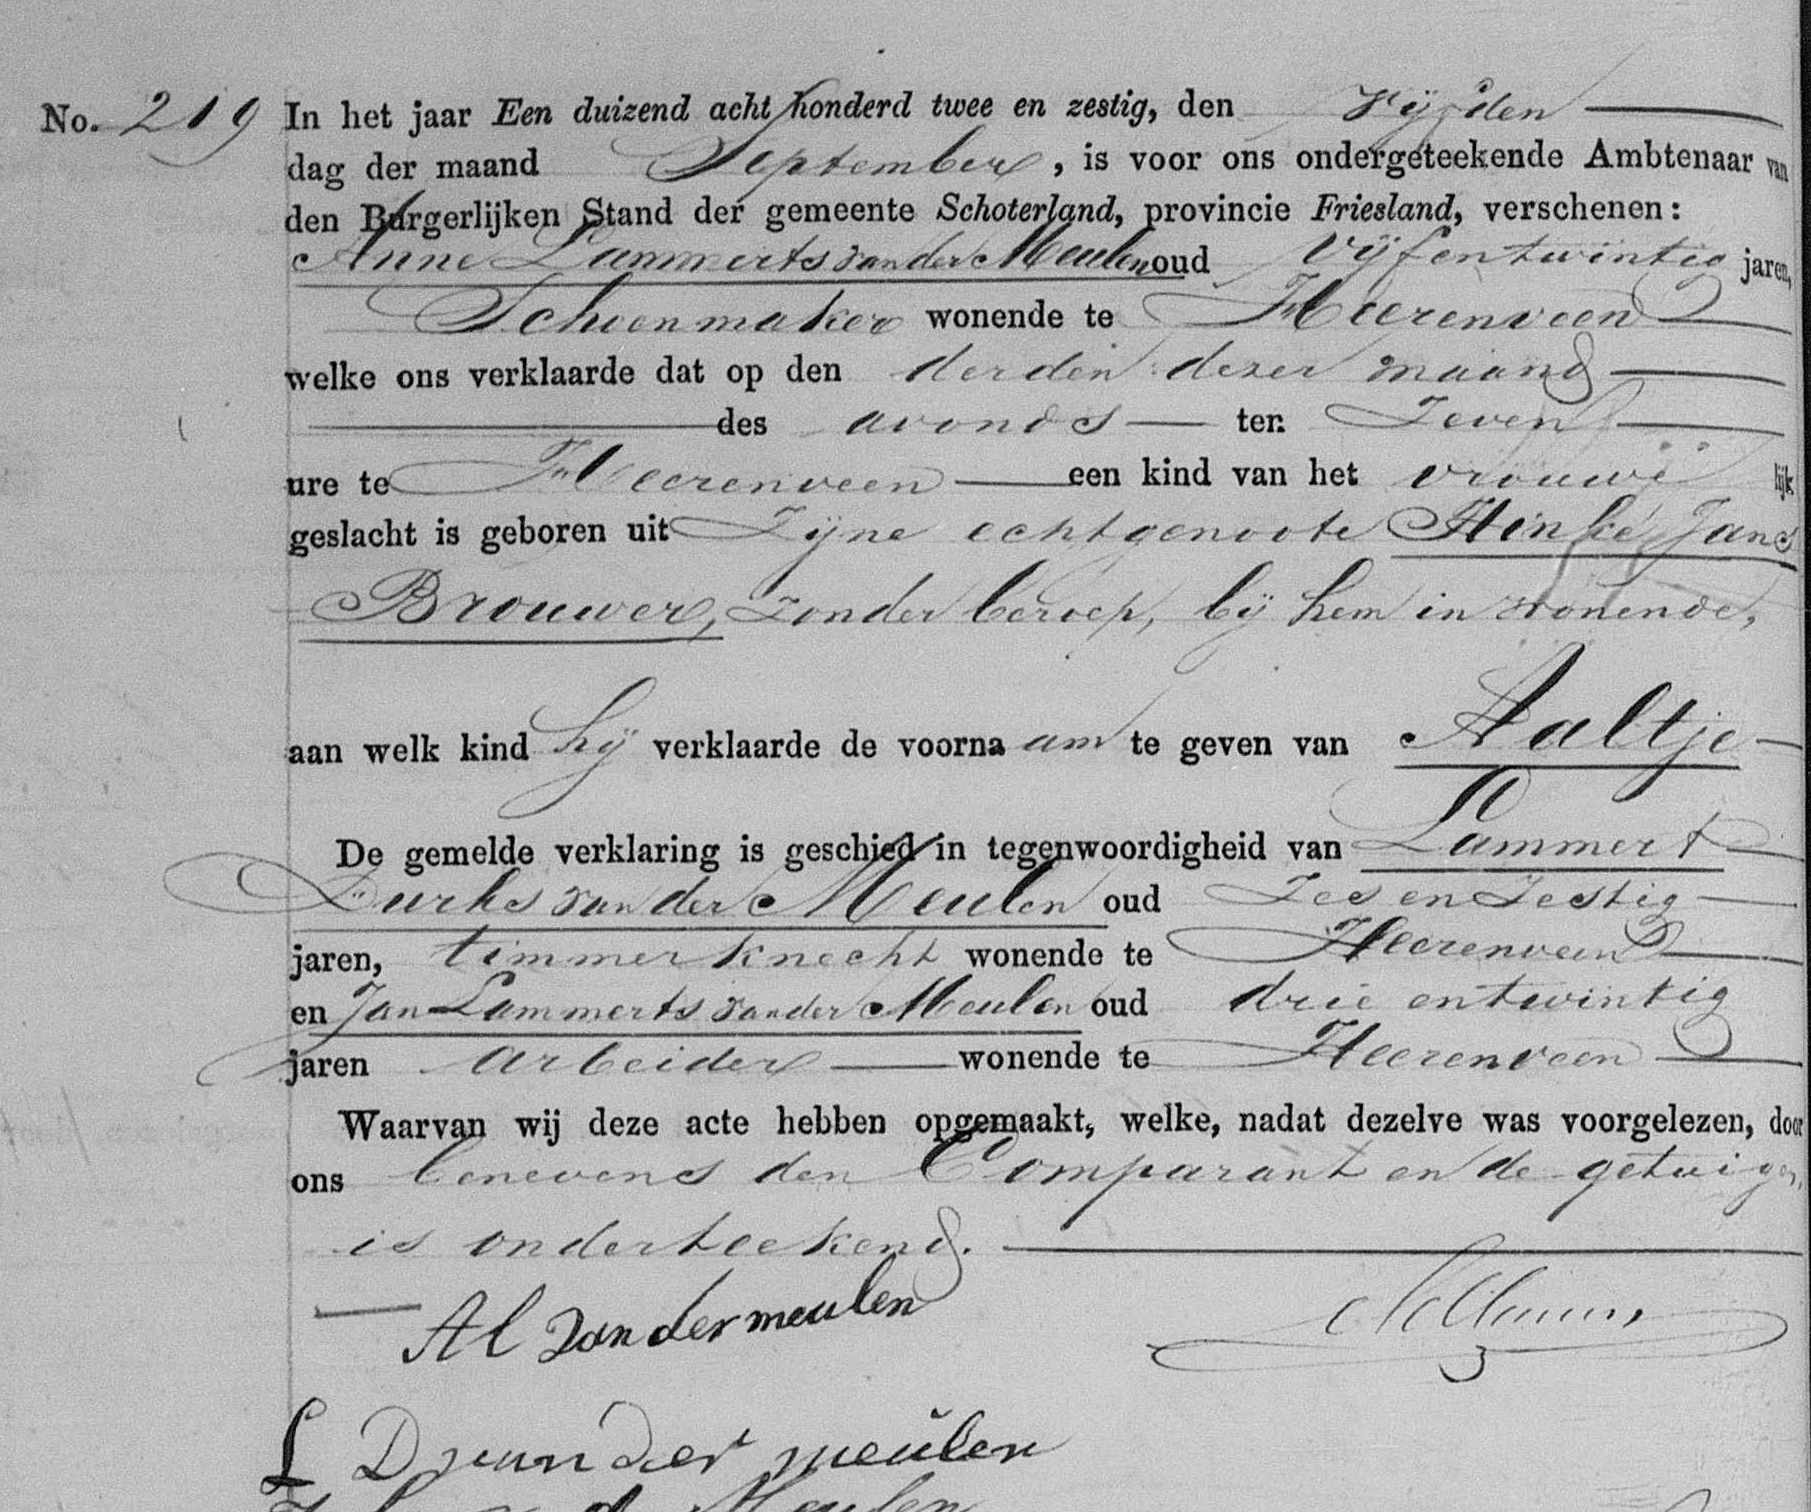 No. 219 In het jaar Een duizend acht honderd twee en zestig, den Vijfden
dag der maand September, is voor ons ondergeteekende Ambtenaar van
den Burgerlijken Stand der gemeente Schoterland, provincie Friesland, verschenen:
Anne Lammerts van der Meulen oud Vijf en twintig jaren,
Schoenmaker wonende te Heerenveen
welke ons verklaarde dat op den derden dezer maand
des avonds ter Zeven
ure te Heerenveen een kind van het vrouwelijk
geslacht is geboren uit Zijne echtgenoote Hinke Jans
Brouwer, zonder beroep, bij hem in wonende,
aan welk kind hij verklaarde de voorna am te geven van Aaltje
De gemelde verklaring is geschied in tegenwoordigheid van Lammert
Durks van der Meulen oud Zes en Zestig
jaren, timmerknecht wonende te Heerenveen
en Jan Lammerts van der Meulen oud drie en twintig
jaren arbeider wonende te Heerenveen
Waarvan wij deze acte hebben opgemaakt, welke, nadat dezelve was voorgelezen, door
ons benevens den Comparant en de getuigen,
is onderteekend.
A L van der meulen
L D van der meulen
Meulen